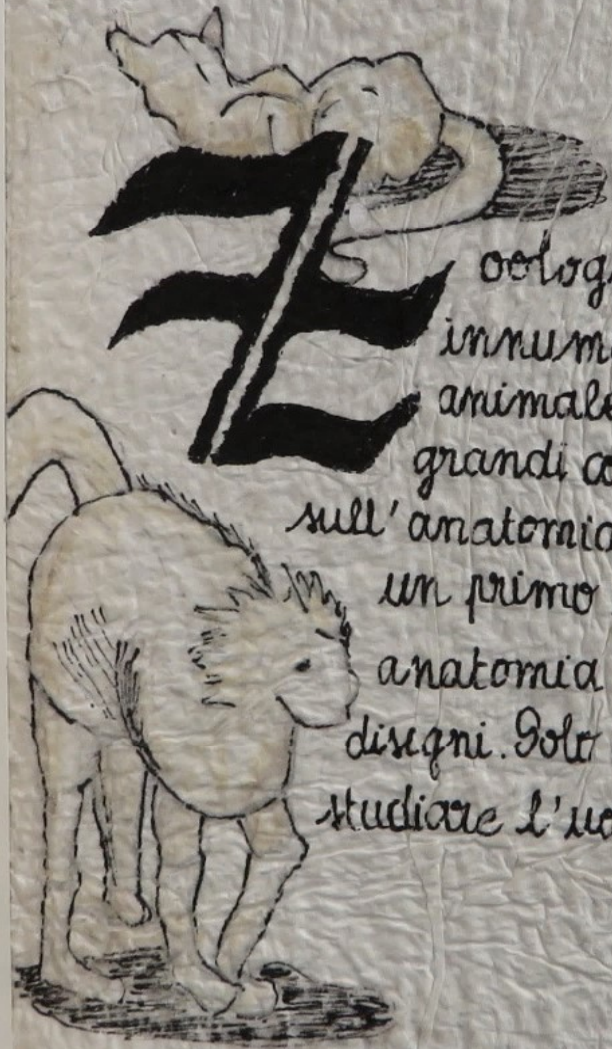 Zoolog
innum
animale
grandi co
sull'anatomia
un primo
anatomia
disegni. Solo
studiare l'uo